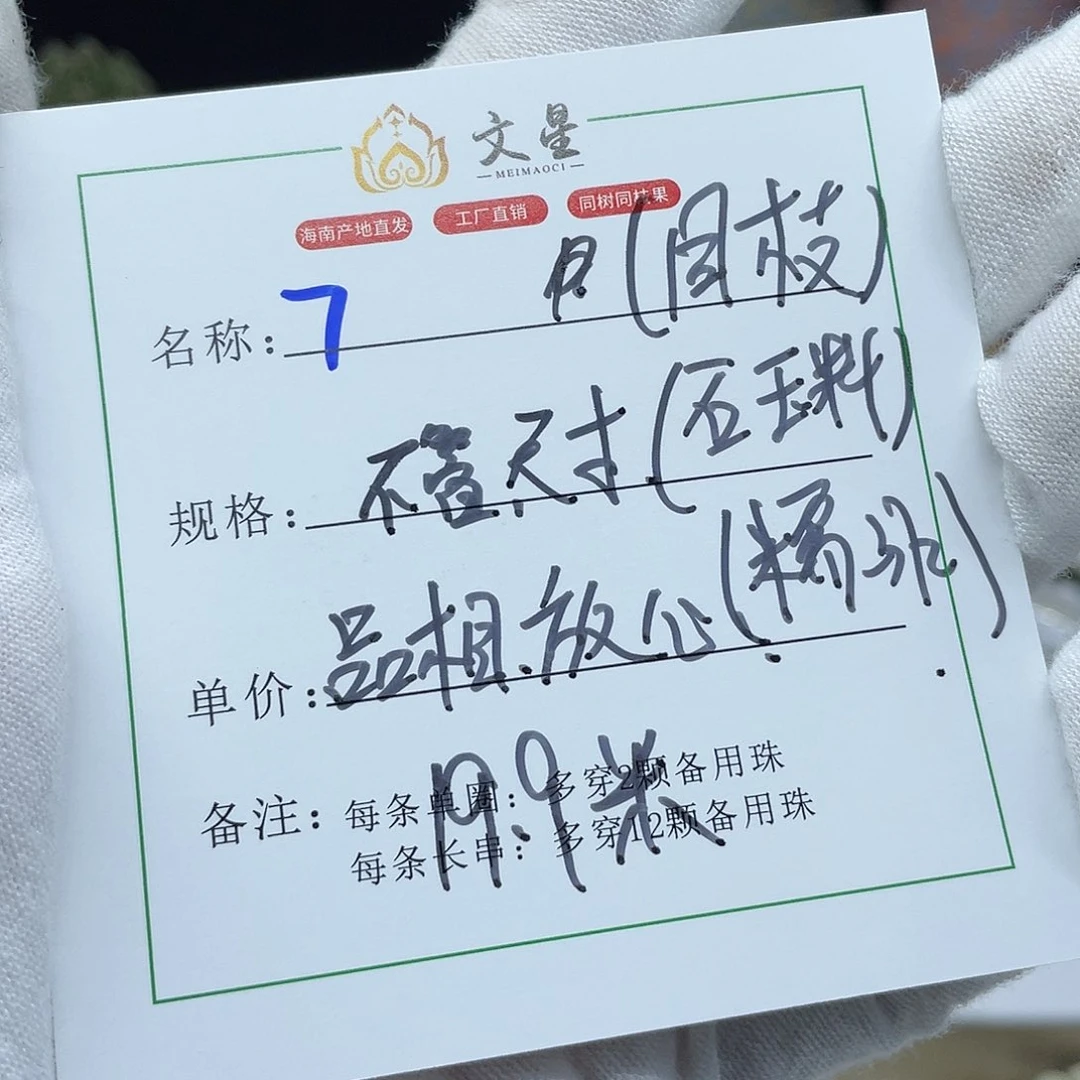 文星
MEIMAOCI
海南产地直发 工厂直销 同树同枝果
名称: 7 (同枝)
规格: 不管尺寸(玉料)
单价: 品相放心(精编)
备注: 每条单圈: 多穿2颗备用珠
每条长串: 多穿12颗备用珠
19.9米